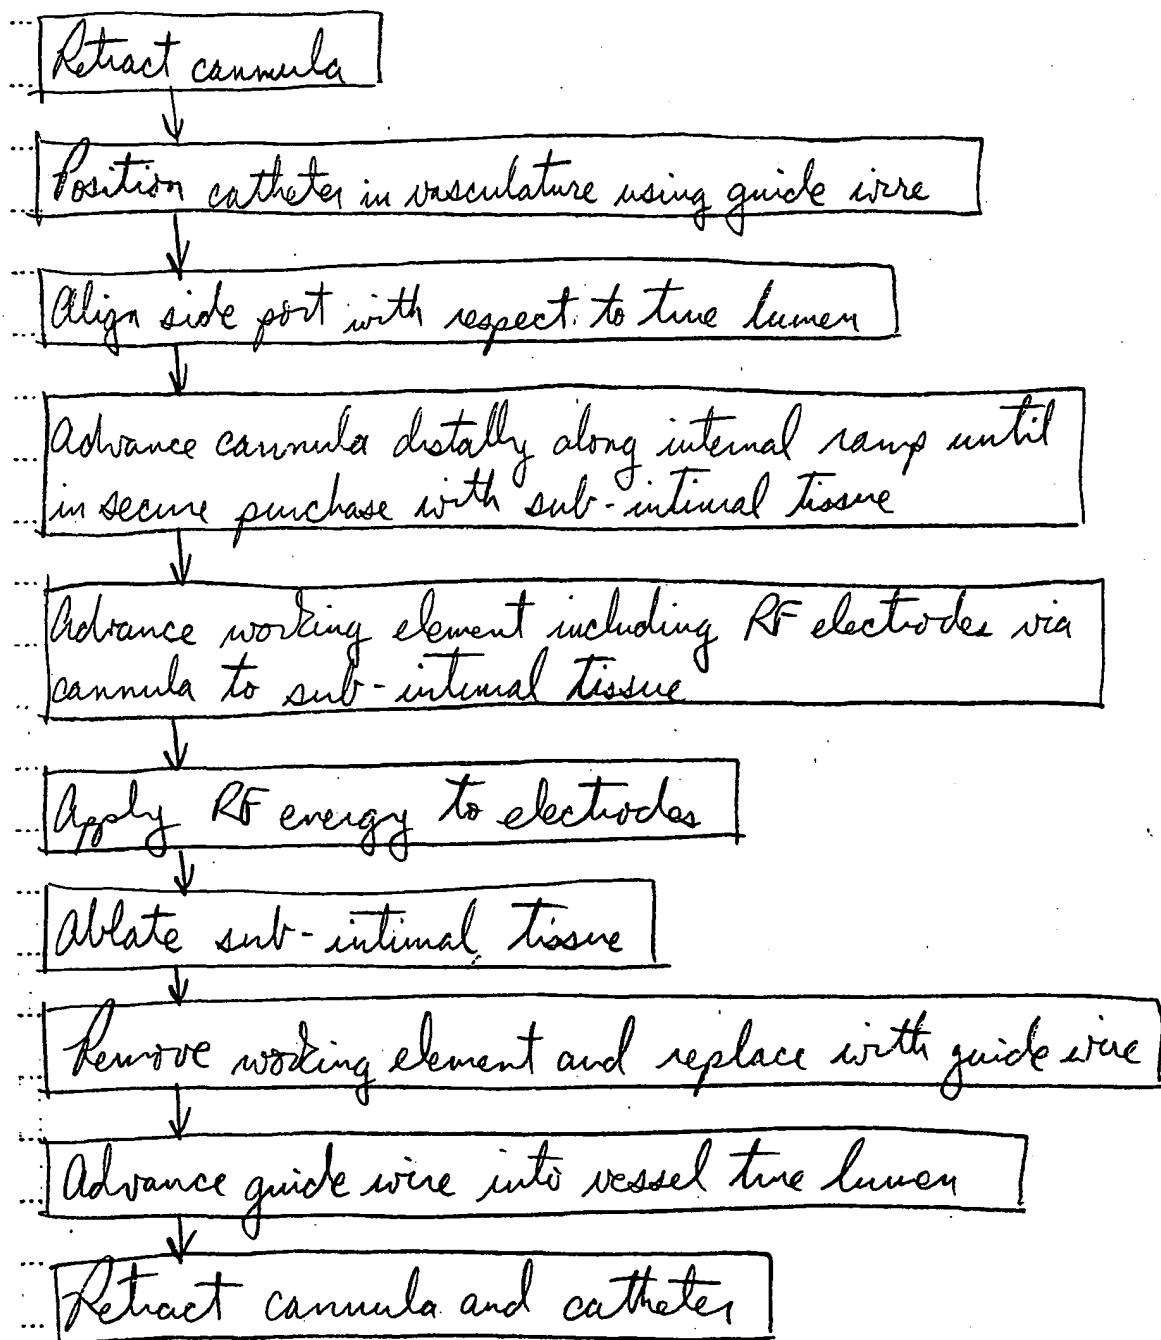 Retract cannula
Position catheter in vasculature using guide wire
Align side port with respect to true lumen
Advance cannula distally along internal ramp until
in secure purchase with sub-intimal tissue
Advance working element including RF electrodes via
cannula to sub-intimal tissue
Apply RF energy to electrodes
Ablate sub-intimal tissue
Remove working element and replace with guide wire
Advance guide wire into vessel true lumen
Retract cannula and catheter